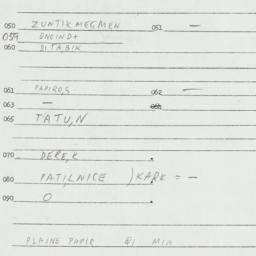 050 ZUNTIK MEGMEN 051 —
059 ONCIND+
060 DITABIK
061 PAPIROS 062 —
063 —
065 TATU,N
070 DERE,K
080 PATILNICE ) KARK = —
090 O
PLAINE PAPIR MIA